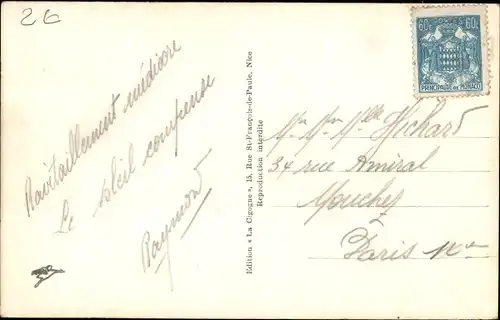 26
Ravitaillement médiocre
Le soleil compense
Raymond
Edition « La Cigogne », 15, Rue St-François-de-Paule, Nice
Reproduction interdite
60c POSTES 60c
PRINCIPAUTÉ DE MONACO
Mr Mme Mlle Richard
34 rue Amiral
Mouchez
Paris